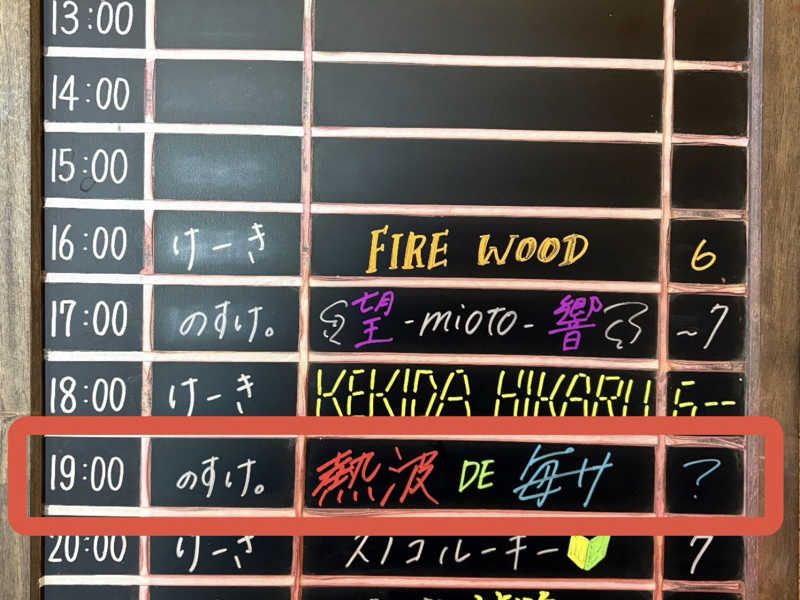 13:00
14:00
15:00
16:00 けーき FIRE WOOD 6
17:00 のすけ。 望 -mioto- 響 ~7
18:00 けーき KEKIDA HIKARU 6--
19:00 のすけ。 熱波 DE 毎サ ?
20:00 けーき スノコルーキー 7